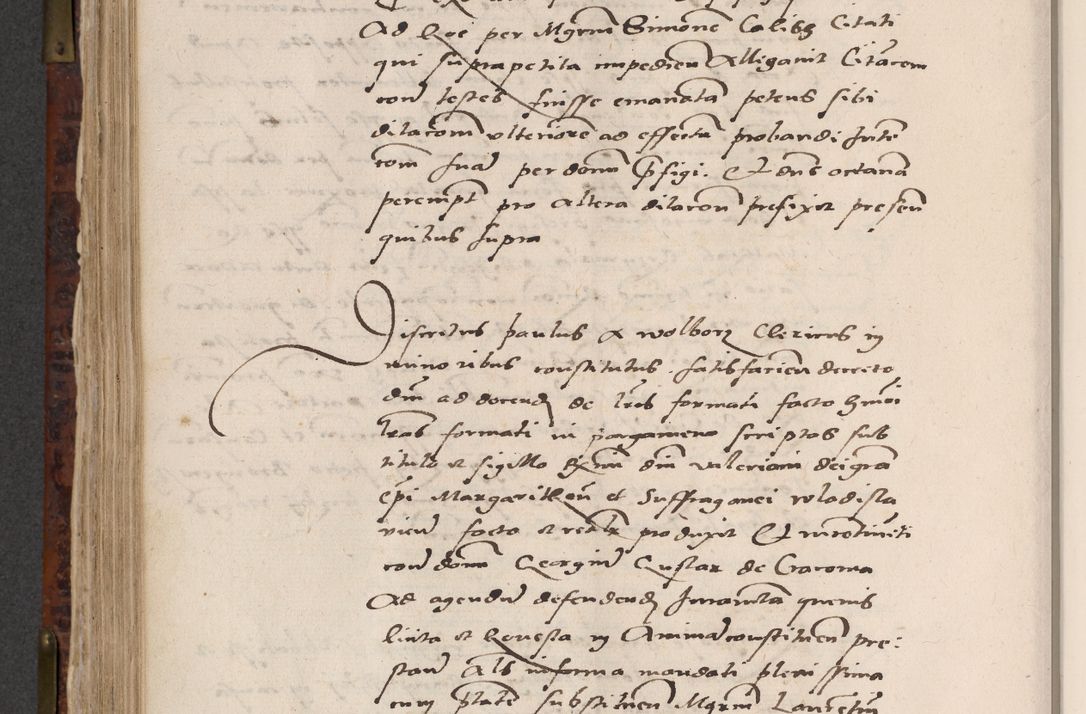 Ad hoc per Mgrm Simonē Calibz Citati
qui supra petita impedien Alligavit Citacem
con testes fuisse emanatā petens sibi
dilacom ulteriorē ad effectū probandi Intē
com suā per donm p̄figi. Et dns octanā
perempt pro altera dilacon prefixit presen
quibus supra
Discretus paulus a wolborz Clericus in
minoribus constitutus satisfacien decreto
dni ad docend de lris formati facto hmoi
lras formati in pargameno scriptas sub
titulo et sigillo Rxmi dni valeriani dei gra
epi Margariteñ et Suffraganei wladisla
vien facto et realr produxit Et incontinēti
con donm Georgiū Custar de Cracovia
Ad agendū defendend Juramta quevis
licita et honesta in Animā constituen pre:
stan Als in forma mandati plenissima
cum ptate substituen Mgrm Laurētiū